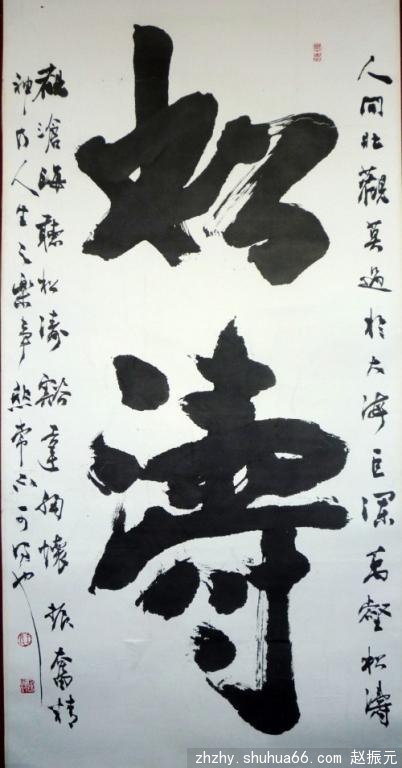 人間壯觀莫過於大海巨瀾萬壑松濤
松濤
觀滄海聽松濤豁達胸懷振奮精
神乃人生之樂事然常不可得也
zhzhy.shuhua66.com 赵振元